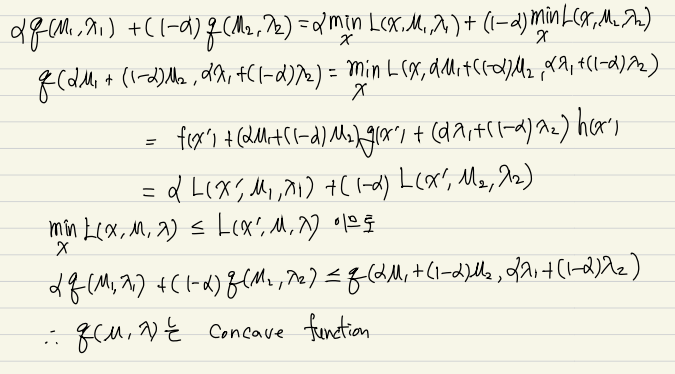 αq(μ₁,λ₁) + (1-α) q(μ₂,λ₂) = α min L(x,μ₁,λ₁) + (1-α) min L(x,μ₂,λ₂)
x x
q(αμ₁ + (1-α)μ₂, αλ₁+(1-α)λ₂) = min L(x, αμ₁+(1-α)μ₂, αλ₁+(1-α)λ₂)
x
= f(x') + (αμ₁+(1-α)μ₂)g(x') + (αλ₁+(1-α)λ₂) h(x')
= α L(x', μ₁,λ₁) + (1-α) L(x', μ₂,λ₂)
min L(x,μ,λ) ≤ L(x',μ,λ) 이므로
x
αq(μ₁,λ₁) + (1-α) q(μ₂,λ₂) ≤ q(αμ₁+(1-α)μ₂, αλ₁+(1-α)λ₂)
∴ q(μ,λ)는 Concave function